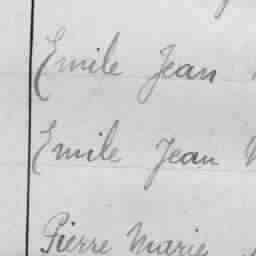 Emile Jean
Emile Jean
Pierre Marie